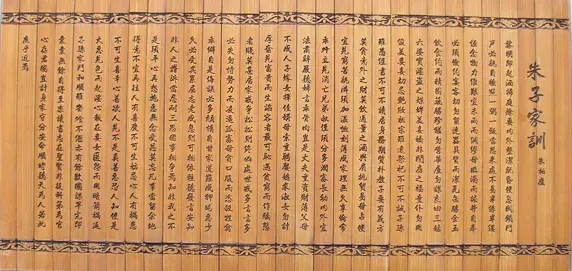 朱子家訓
朱柏廬
黎明即起灑掃庭除要內外整潔既昏便息關鎖門
戶必親自檢點一粥一飯當思來處不易半絲半縷
恆念物力維艱宜未雨而綢繆毋臨渴而掘井自奉
必須儉約宴客切勿留連器具質而潔瓦缶勝金玉
飲食約而精園蔬勝珍饈勿營華屋勿謀良田三姑
六婆實淫盜之媒婢美妾嬌非閨房之福童僕勿用
俊美妻妾切忌艷妝祖宗雖遠祭祀不可不誠子孫
雖愚經書不可不讀居身務期質樸教子要有義方
莫貪意外之財莫飲過量之酒與肩挑貿易毋佔便
宜見窮苦親鄰須加溫恤刻薄成家理無久享倫常
乖舛立見消亡兄弟叔侄須分多潤寡長幼內外宜
法肅辭嚴聽婦言乖骨肉豈是丈夫重資財薄父母
不成人子嫁女擇佳婿毋索重聘娶媳求淑女勿計
厚奩見富貴而生諂容者最可恥遇貧窮而作驕態
者賤莫甚居家戒爭訟訟則終凶處世戒多言言多
必失勿恃勢力而凌逼孤寡毋貪口腹而恣殺牲禽
乖僻自是悔誤必多頹惰自甘家道難成狎暱惡少
久必受其累屈志老成急則可相依輕聽發言安知
非人之譖訴當忍耐三思因事相爭焉知非我之不
是須平心再想施惠無念受恩莫忘凡事當留餘地
得意不宜再往人有喜慶不可生妒忌心人有禍患
不可生喜幸心善欲人見不是真善惡恐人知便是
大惡見色而起淫心報在妻女匿怨而用暗箭禍延
子孫家門和順雖饔飧不繼亦有餘歡國課早完即
囊橐無餘自得至樂讀書志在聖賢非徒科第為官
心存君國豈計身家守分安命順時聽天為人若此
庶乎近焉